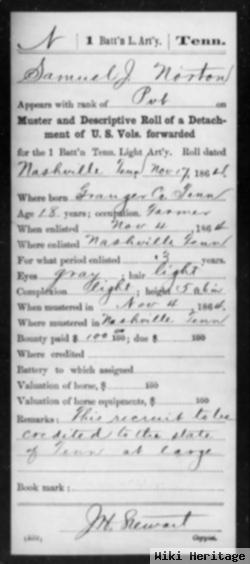 N 1 Batt'n L. Art'y. Tenn.
Samuel J. Norton
Appears with rank of Pvt
Muster and Descriptive Roll of a Detach-
ment of U. S. Vols. forwarded
for the 1 Batt'n Tenn. Light Art'y. Roll dated
Nashville Tenn Nov 17, 1864
Where born Granger Co. Tenn
Age 18 years; occupation Farmer
When enlisted Nov 4 1864
Where enlisted Nashville Tenn
For what period enlisted 3 years.
Eyes gray; hair light
Complexion light; height 5 ft in.
When mustered in Nov 4, 1864.
Where mustered in Nashville Tenn
Bounty paid $ 100 00/100; due $ 100
Where credited
Battery to which assigned
Valuation of horse, $ 100
Valuation of horse equipments, $ 100
Remarks: This recruit to be
credited to the state
of Tenn at large
Book mark:
J. H. Stewart
Copyist.
Wiki Heritage